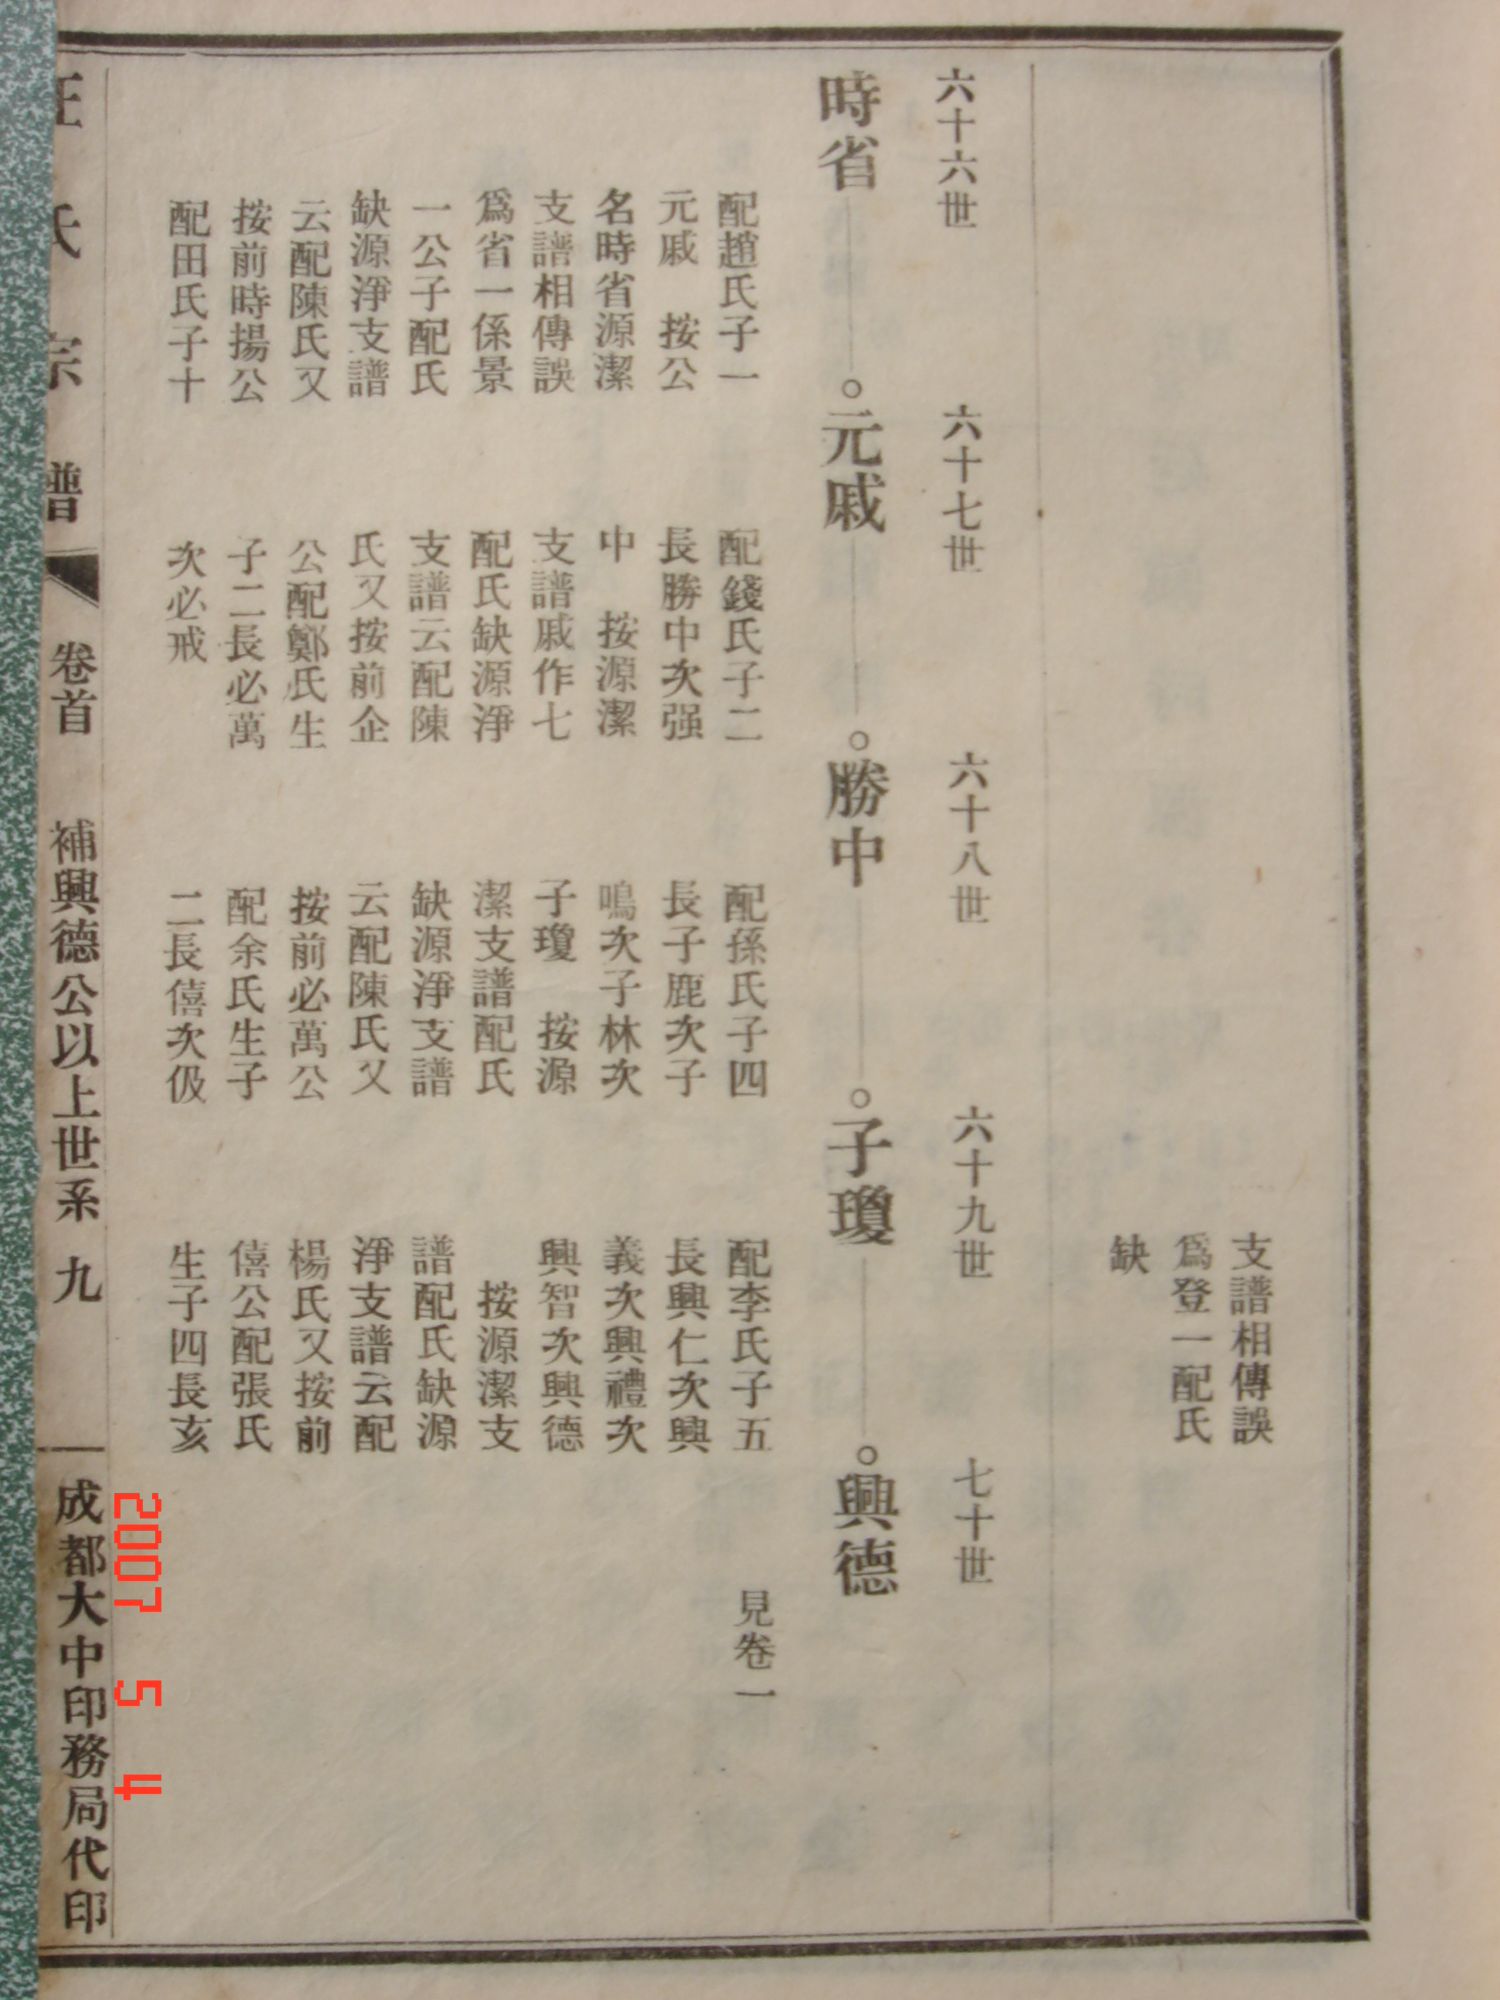 支譜相傳誤
爲登一配氏
缺
六十六世
六十七世
六十八世
六十九世
七十世
時省
元戚
勝中
子瓊
興德
配趙氏子一
元戚　按公
名時省源潔
支譜相傳誤
爲省一係景
一公子配氏
缺源淨支譜
云配陳氏又
按前時揚公
配田氏子十
配錢氏子二
長勝中次强
中　按源潔
支譜戚作七
配氏缺源淨
支譜云配陳
氏又按前企
公配鄭氏生
子二長必萬
次必戒
配孫氏子四
長子鹿次子
鳴次子林次
子瓊　按源
潔支譜配氏
缺源淨支譜
云配陳氏又
按前必萬公
配余氏生子
二長僖次伋
配李氏子五
長興仁次興
義次興禮次
興智次興德
按源潔支
譜配氏缺源
淨支譜云配
楊氏又按前
僖公配張氏
生子四長亥
見卷一
汪氏宗譜
卷首
補興德公以上世系
九
成都大中印務局代印
2007 5 4